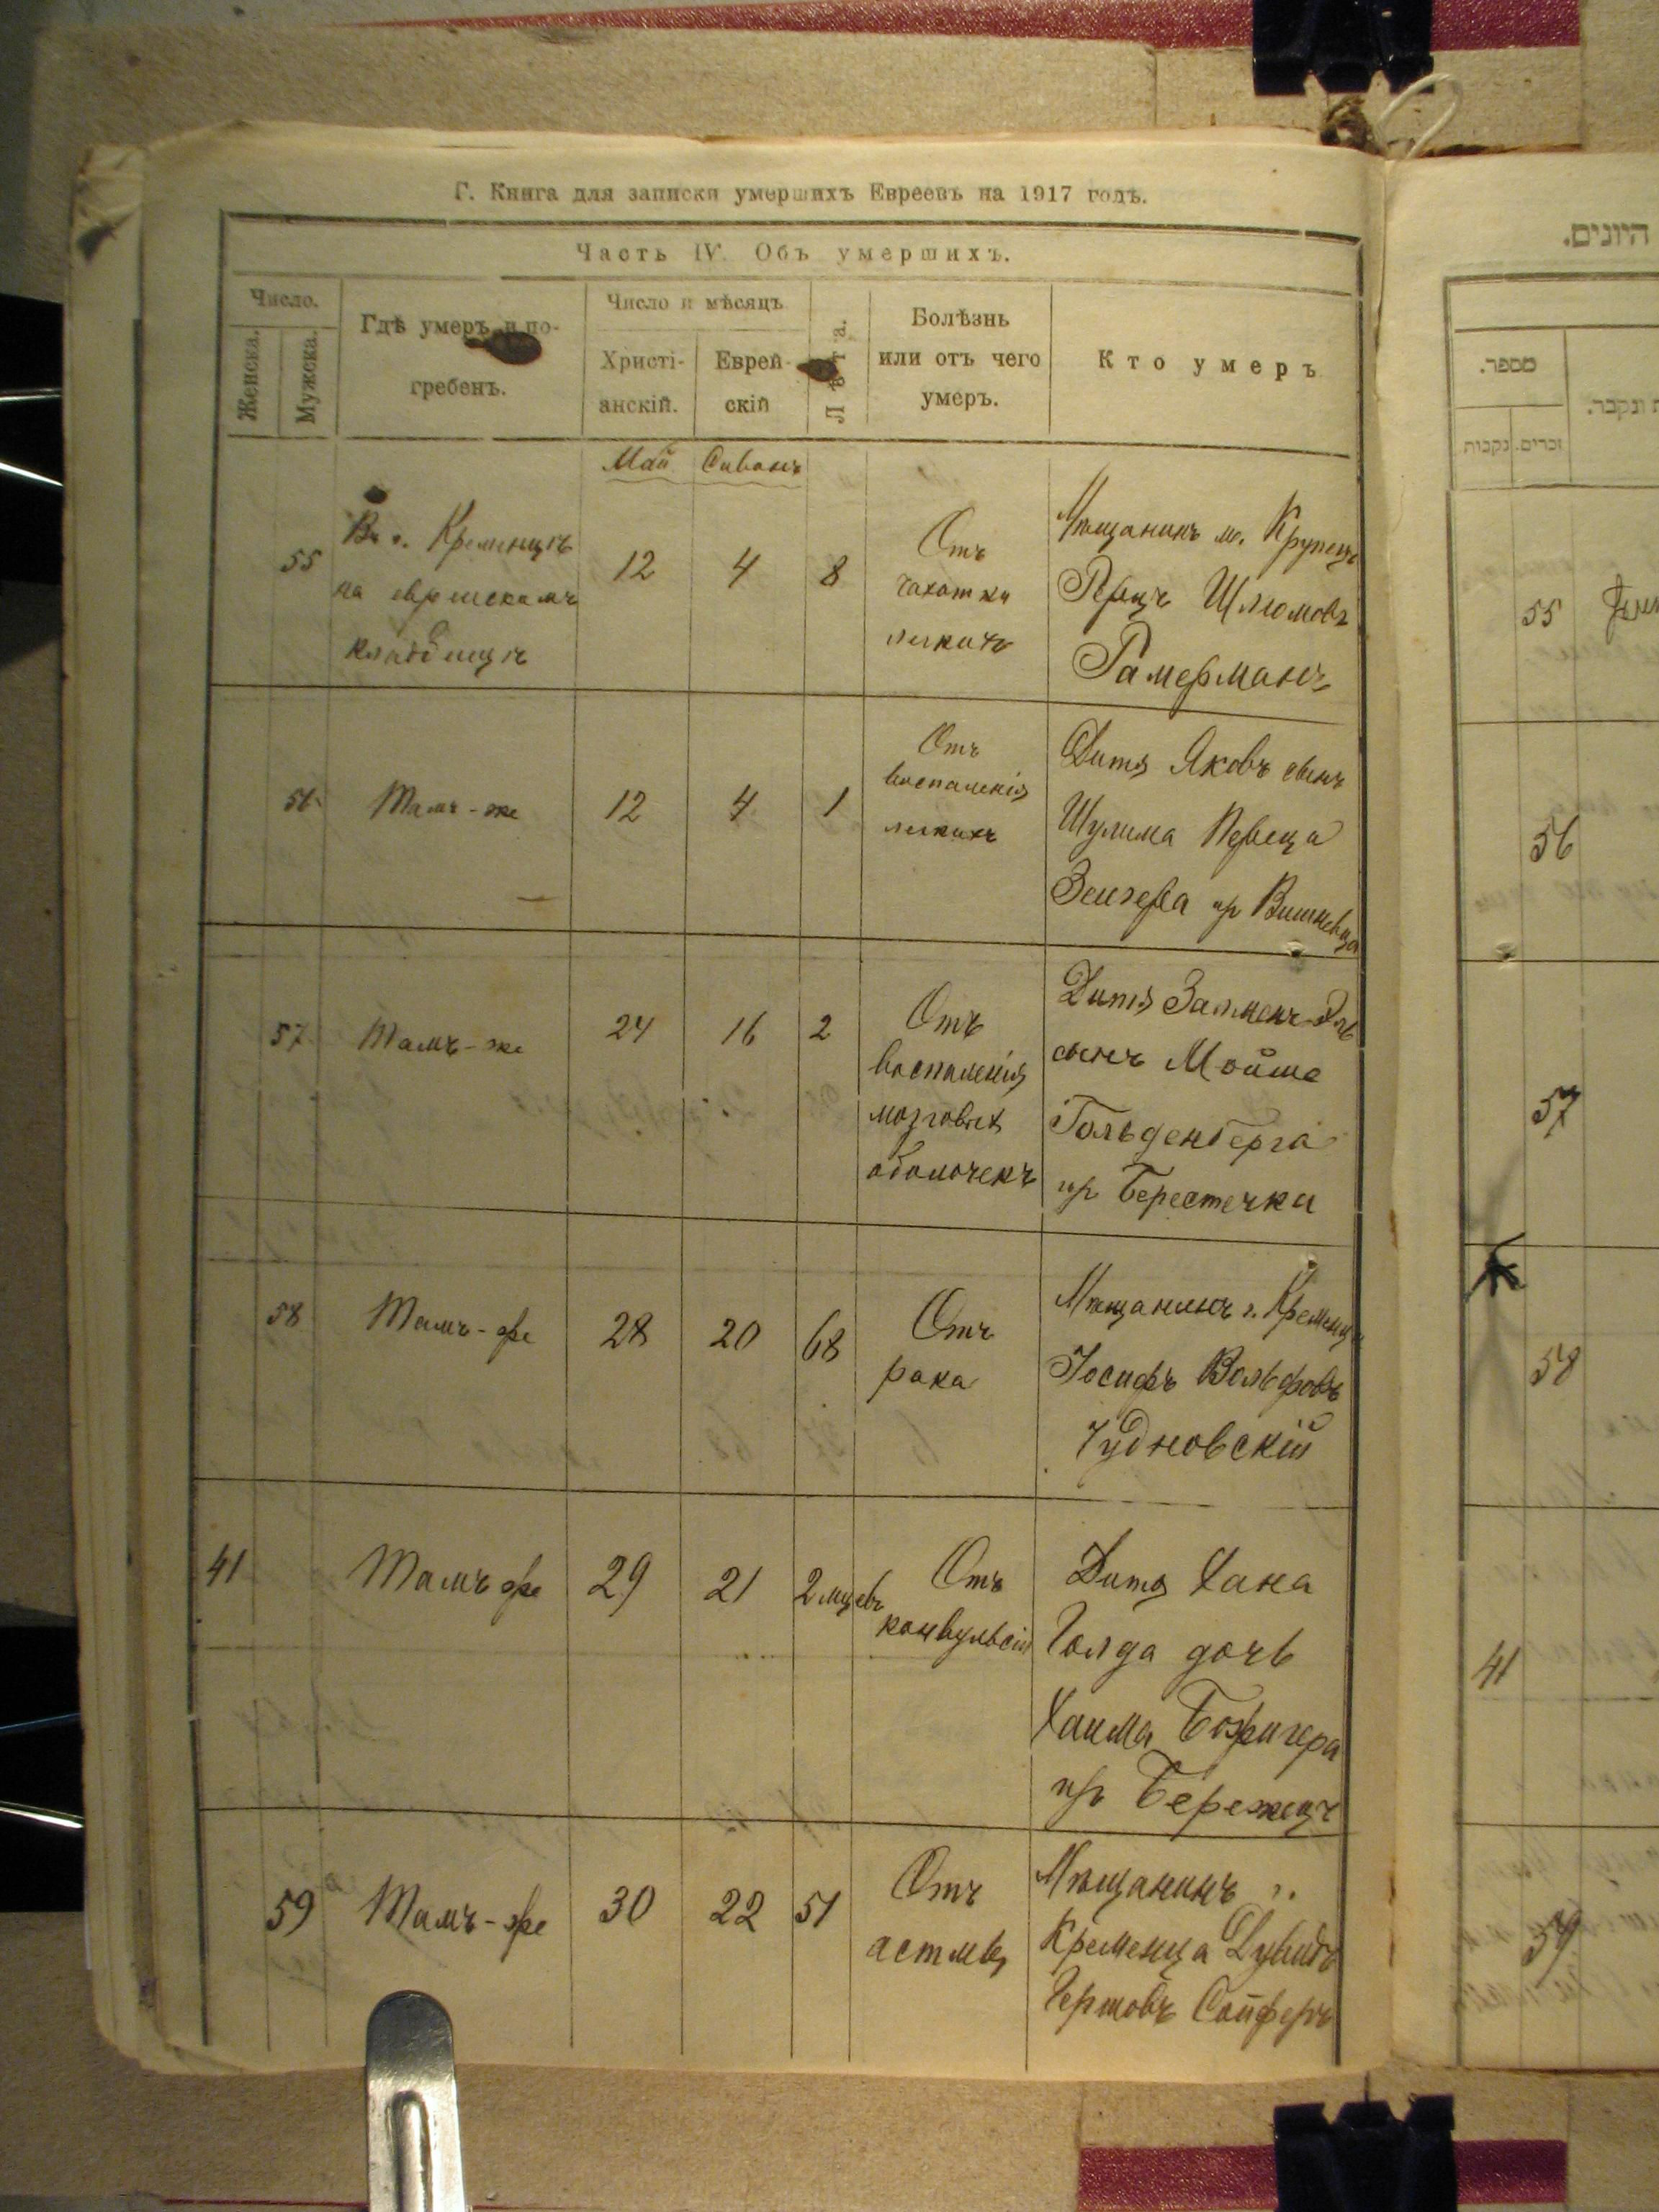 Г. Книга для записки умершихъ Евреевъ на 1917 годъ.
Часть IV. Объ умершихъ.
Число.
Женска.
Мужска.
Гдѣ умеръ и по-
гребенъ.
Число и мѣсяцъ
Христі-
анскій.
Еврей-
скій
Лѣта.
Болѣзнь
или отъ чего
умеръ.
Кто умеръ
Май Сиванъ
55
Въ г. Кременцѣ
на еврейскомъ
кладбищѣ
12
4
8
Отъ
чахотки
легкихъ
Мѣщанинъ м. Крупецъ
Перецъ Шлiомовъ
Гамерманъ
56
Тамъ-же
12
4
1
Отъ
воспаленія
легкихъ
Дитя Яковъ сынъ
Шулима Переца
Зейгера пр Вишневца
57
Тамъ-же
24
16
2
Отъ
воспаленія
мозговых
оболочекъ
Дитя Залменъ
сынъ Мойше
Гольденберга
пр Берестечка
58
Тамъ-же
28
20
68
Отъ
рака
Мѣщанинъ г. Кременца
Іосифъ Вольфовъ
Чудновскій
41
Тамъ же
29
21
2 мцевъ
Отъ
конвульсіи
Дитя Хана
Голда дочь
Хаима
пр Бережецъ
59
Тамъ-же
30
22
51
Отъ
астмы
Мѣщанинъ г.
Кременца Дувидъ
Гершовъ Сойферъ
היונים.
מספר.
זכרים.
נקבות
ונקבר.
55
56
57
58
41
59